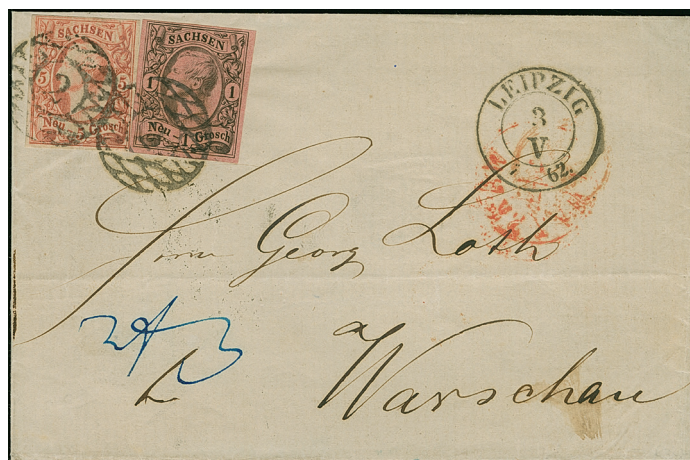 SACHSEN
5 5
Neu-Grosch
SACHSEN
1 1
Neu-1 Grosch
2
LEIPZIG
3
V
62.
Herrn Georg Loth
Warschau